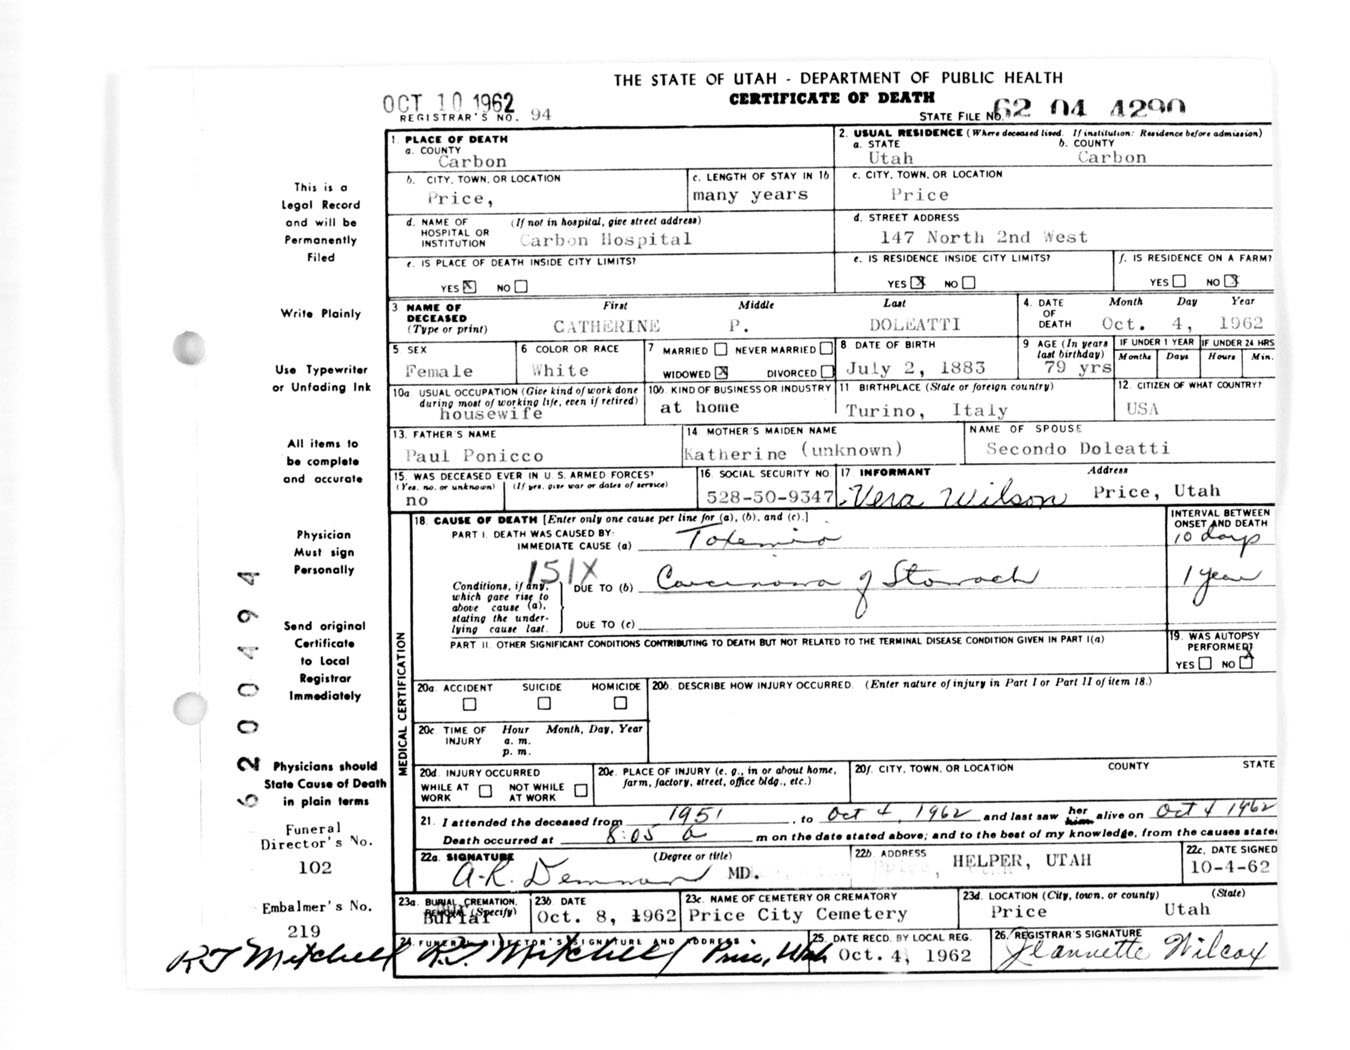 THE STATE OF UTAH - DEPARTMENT OF PUBLIC HEALTH
CERTIFICATE OF DEATH
OCT 10 1962
REGISTRAR'S NO. 94
STATE FILE No. 62 04 4290
This is a
Legal Record
and will be
Permanently
Filed
Write Plainly
Use Typewriter
or Unfading Ink
All items to
be complete
and accurate
Physician
Must sign
Personally
Send original
Certificate
to Local
Registrar
Immediately
Physicians should
State Cause of Death
in plain terms
Funeral
Director's No.
102
Embalmer's No.
219
R T Mitchell
6200494
1. PLACE OF DEATH
a. COUNTY
Carbon
2. USUAL RESIDENCE (Where deceased lived. If institution: Residence before admission)
a. STATE
Utah
b. COUNTY
Carbon
b. CITY, TOWN, OR LOCATION
Price,
c. LENGTH OF STAY IN 1b
many years
c. CITY, TOWN, OR LOCATION
Price
d. NAME OF HOSPITAL OR INSTITUTION (If not in hospital, give street address)
Carbon Hospital
d. STREET ADDRESS
147 North 2nd West
e. IS PLACE OF DEATH INSIDE CITY LIMITS?
YES X NO
e. IS RESIDENCE INSIDE CITY LIMITS?
YES X NO
f. IS RESIDENCE ON A FARM?
YES NO X
3 NAME OF DECEASED (Type or print)
First Middle Last
CATHERINE P. DOLEATTI
4. DATE OF DEATH
Month Day Year
Oct. 4, 1962
5 SEX
Female
6 COLOR OR RACE
White
7 MARRIED NEVER MARRIED
WIDOWED X DIVORCED
8 DATE OF BIRTH
July 2, 1883
9 AGE (In years last birthday)
79 yrs
IF UNDER 1 YEAR
Months Days
IF UNDER 24 HRS
Hours Min.
10a USUAL OCCUPATION (Give kind of work done during most of working life, even if retired)
housewife
10b. KIND OF BUSINESS OR INDUSTRY
at home
11 BIRTHPLACE (State or foreign country)
Turino, Italy
12 CITIZEN OF WHAT COUNTRY?
USA
13. FATHER'S NAME
Paul Ponicco
14. MOTHER'S MAIDEN NAME
Katherine (unknown)
NAME OF SPOUSE
Secondo Doleatti
15. WAS DECEASED EVER IN U. S. ARMED FORCES?
(Yes, no, or unknown) (If yes, give war or dates of service)
no
16 SOCIAL SECURITY NO.
528-50-9347
17 INFORMANT Address
Vera Wilson Price, Utah
MEDICAL CERTIFICATION
18. CAUSE OF DEATH [Enter only one cause per line for (a), (b), and (c).]
INTERVAL BETWEEN ONSET AND DEATH
PART I. DEATH WAS CAUSED BY:
IMMEDIATE CAUSE (a) Toxemia 10 days
Conditions, if any, which gave rise to above cause (a), stating the underlying cause last.
151X
DUE TO (b) Carcinoma of Stomach 1 year
DUE TO (c)
PART II. OTHER SIGNIFICANT CONDITIONS CONTRIBUTING TO DEATH BUT NOT RELATED TO THE TERMINAL DISEASE CONDITION GIVEN IN PART I(a)
19. WAS AUTOPSY PERFORMED?
YES NO X
20a. ACCIDENT SUICIDE HOMICIDE
20b. DESCRIBE HOW INJURY OCCURRED. (Enter nature of injury in Part I or Part II of item 18.)
20c. TIME OF INJURY Hour Month, Day, Year
a. m.
p. m.
20d. INJURY OCCURRED
WHILE AT WORK NOT WHILE AT WORK
20e. PLACE OF INJURY (e. g., in or about home, farm, factory, street, office bldg., etc.)
20f. CITY, TOWN, OR LOCATION COUNTY STATE
21. I attended the deceased from 1951, to Oct 4, 1962 and last saw her him alive on Oct 4 1962
Death occurred at 8:05 a m on the date stated above; and to the best of my knowledge, from the causes state
22a. SIGNATURE (Degree or title)
A. R. Demman MD.
22b. ADDRESS
HELPER, UTAH
22c. DATE SIGNED
10-4-62
23a. BURIAL, CREMATION, REMOVAL (Specify)
Burial
23b DATE
Oct. 8, 1962
23c. NAME OF CEMETERY OR CREMATORY
Price City Cemetery
23d. LOCATION (City, town, or county) (State)
Price Utah
24. FUNERAL DIRECTOR'S SIGNATURE AND ADDRESS
R.T. Mitchell Price, Utah
25. DATE RECD. BY LOCAL REG.
Oct. 4, 1962
26. REGISTRAR'S SIGNATURE
Jeannette Wilcox